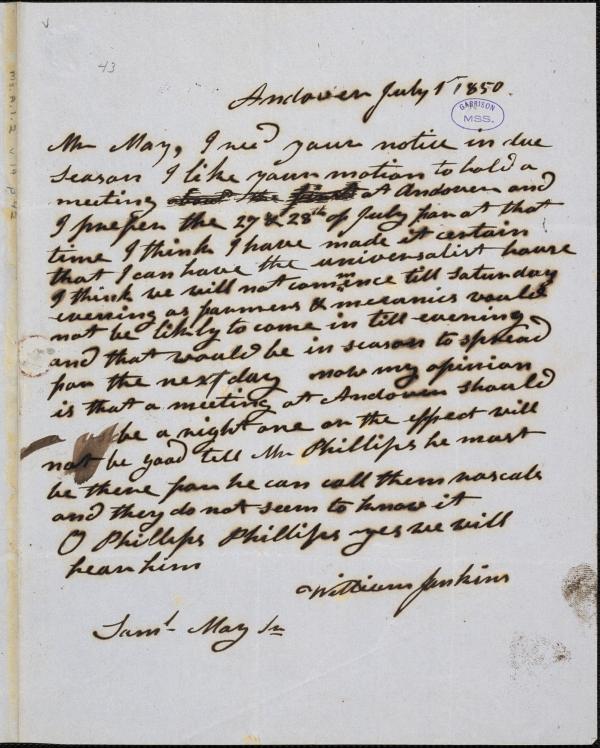 43
Andover July 1st 1850.
GARRISON
MSS.
Ms.A.1.2 v.19 p.42
Mr May, I recd your notice in due
season I like your motion to hold a
meeting about the first at Andover and
I prefer the 27 & 28th of July for at that
time I think I have made it certain
that I can have the universalist house
I think we will not commence till Saturday
everring as farmers & mecanics would
not be likely to come in till evening
and that would be in season to spread
for the next day now my opinion
is that a meeting at Andover should
be a right one or the effect will
not be good tell Mr Phillips he must
be there for he can call them rascals
and they do not seem to know it
O Phillips Phillips yes we will
hear him
William Jenkins
Saml May Jr